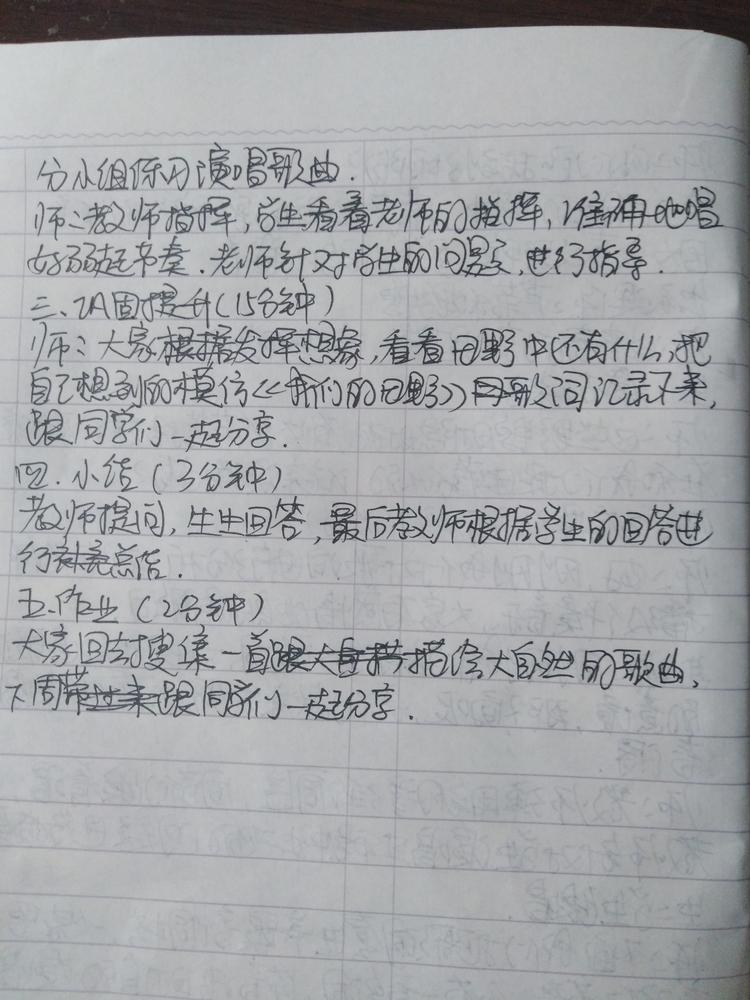 分小组练习演唱歌曲.
师:教师指挥,学生看着老师的指挥,准确地唱
好弱起节奏.老师针对学生的问题,进行指导.
三、巩固提升(15分钟)
师:大家根据发挥想象,看看田野中还有什么,把
自己想到的模仿《我们的田野》歌词记录下来,
跟同学们一起分享.
四.小结(3分钟)
教师提问,生生回答,最后教师根据学生的回答进
行补充总结.
五.作业(2分钟)
大家回去搜集一首描绘大自然的歌曲,
下周跟同学们一起分享.